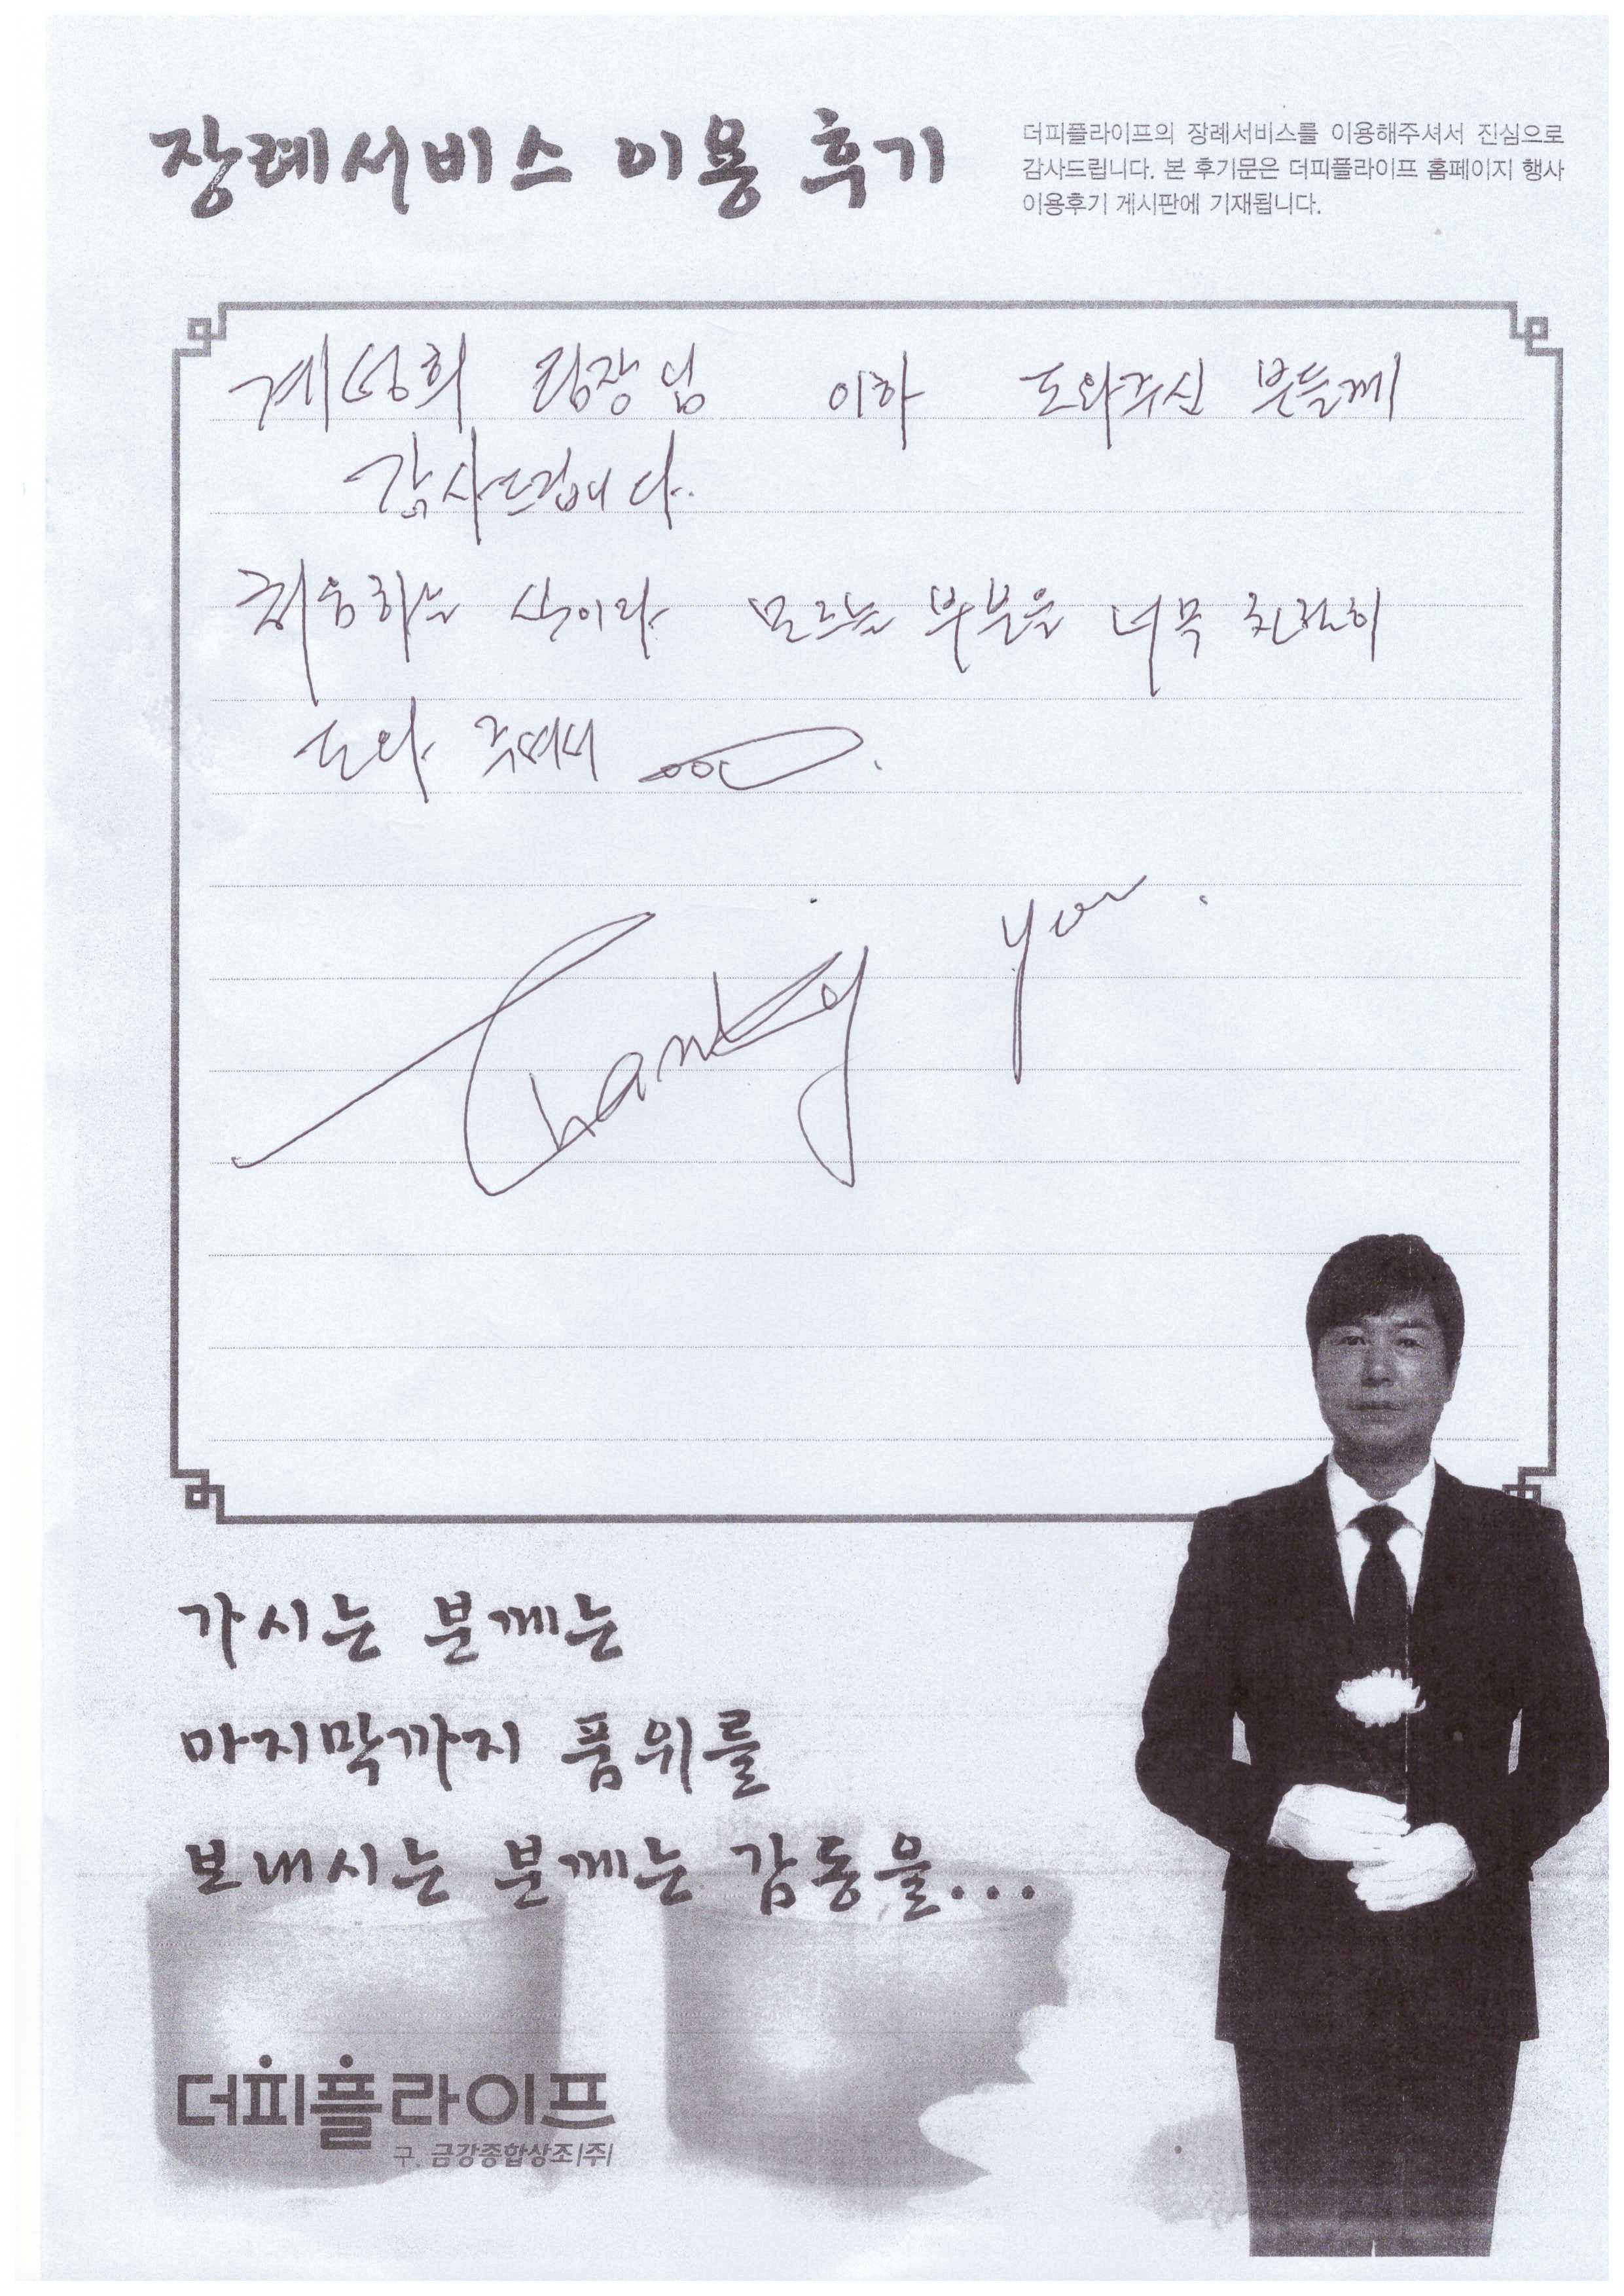 장례서비스 이용 후기
더피플라이프의 장례서비스를 이용해주셔서 진심으로
감사드립니다. 본 후기문은 더피플라이프 홈페이지 행사
이용후기 게시판에 기재됩니다.
계성희 팀장님 이하 도와주신 분들께
감사드립니다.
처음하는 식이라 모르는 부분을 너무 친절히
도와 주며서
Thank you.
가시는 분께는
마지막까지 품위를
보내시는 분께는 감동을...
더피플라이프
구. 금강종합상조|주|